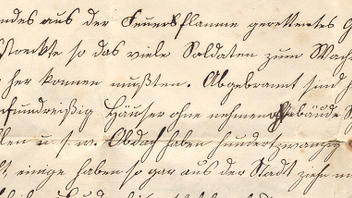 ndes aus der Feuersflamme gerettetes G
streckte so das viele Soldaten zum Wach
her kommen mußten. Abgebrannt sind
unfundreißig Häuser ohne nehmen bäude
llen u. s. w. Obdach haben hundertzwanzig
einige haben so gar aus der Stadt ziehn m